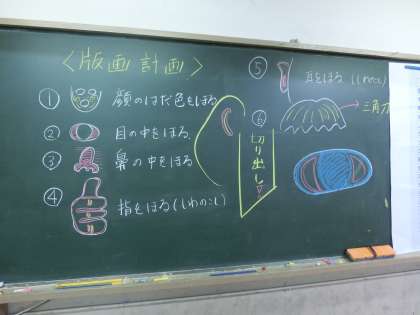 〈版画計画〉
① 顔のはだ色をほる
② 目の中をほる
③ 鼻の中をほる
④ 指をほる(しわのこし)
⑤ 耳をほる(しわのこし)
⑥
三角刀
切り出し